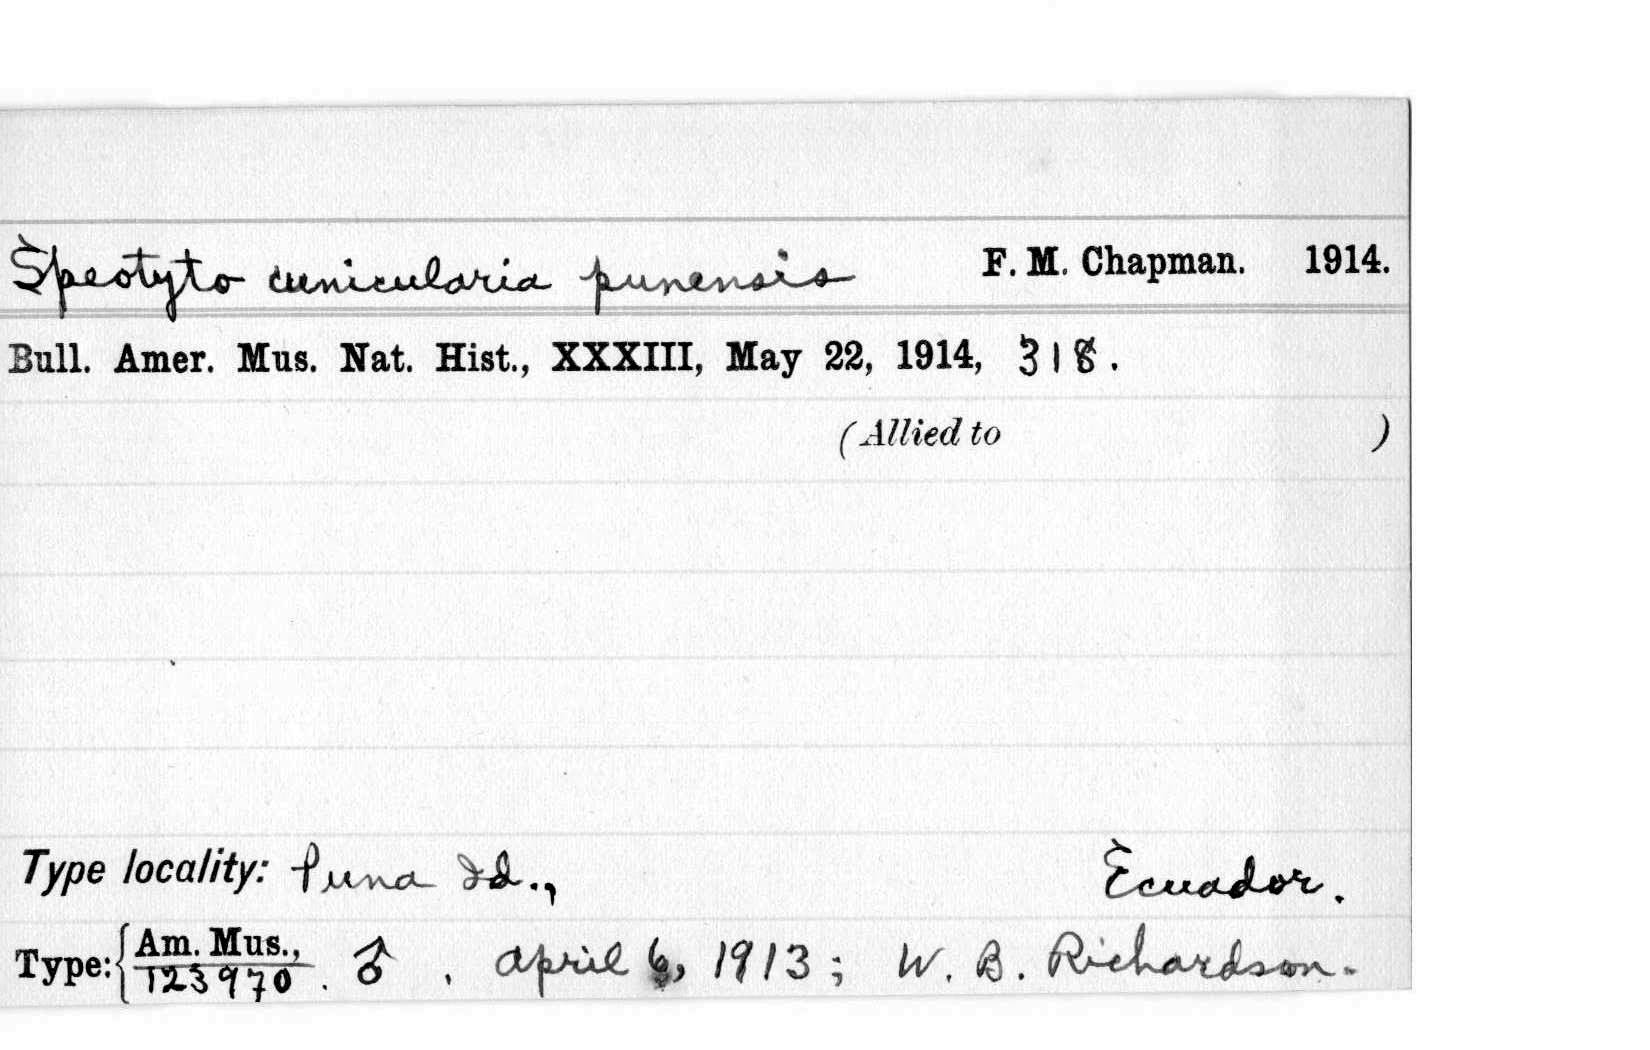 Speotyto cunicularia punensis F. M. Chapman. 1914.
Bull. Amer. Mus. Nat. Hist., XXXIII, May 22, 1914, 318.
(Allied to )
Type locality: Puna Id., Ecuador.
Type: { Am. Mus.,
123970 . ♂ . April 6, 1913; W. B. Richardson.